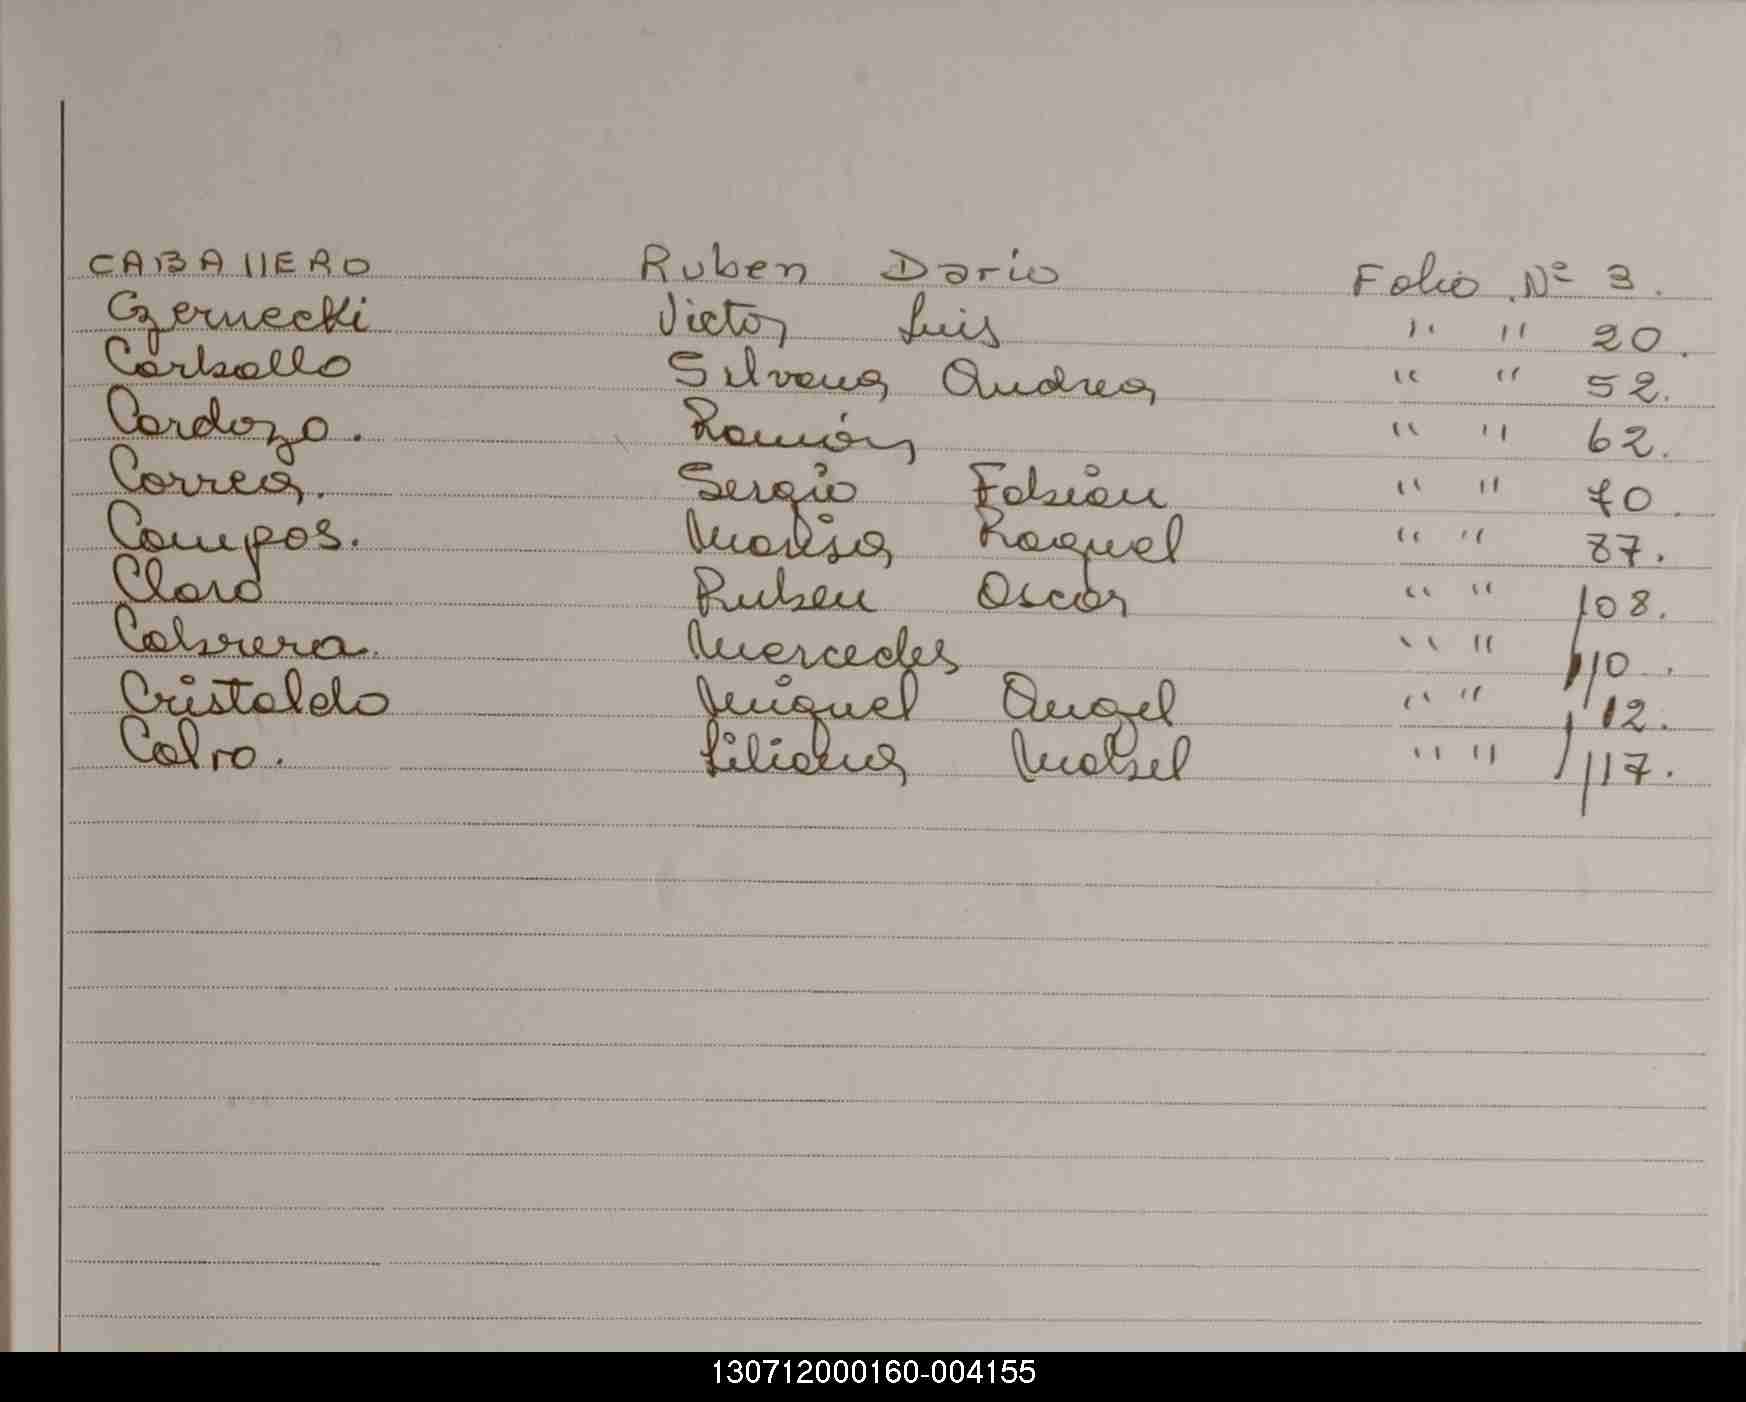 CABALLERO Ruben Dario Folio Nº 3.
Czernecki Victor Luis " " 20.
Carballo Silvana Andrea " " 52.
Cardozo. Ramón " " 62.
Correa. Sergio Fabián " " 70.
Campos. Marisa Raquel " " 87.
Claro Ruben Oscar " " 108.
Cabrera. Mercedes " " 110.
Cristaldo Miguel Angel " " 112.
Calvo. Liliana Mabel " " 117.
130712000160-004155